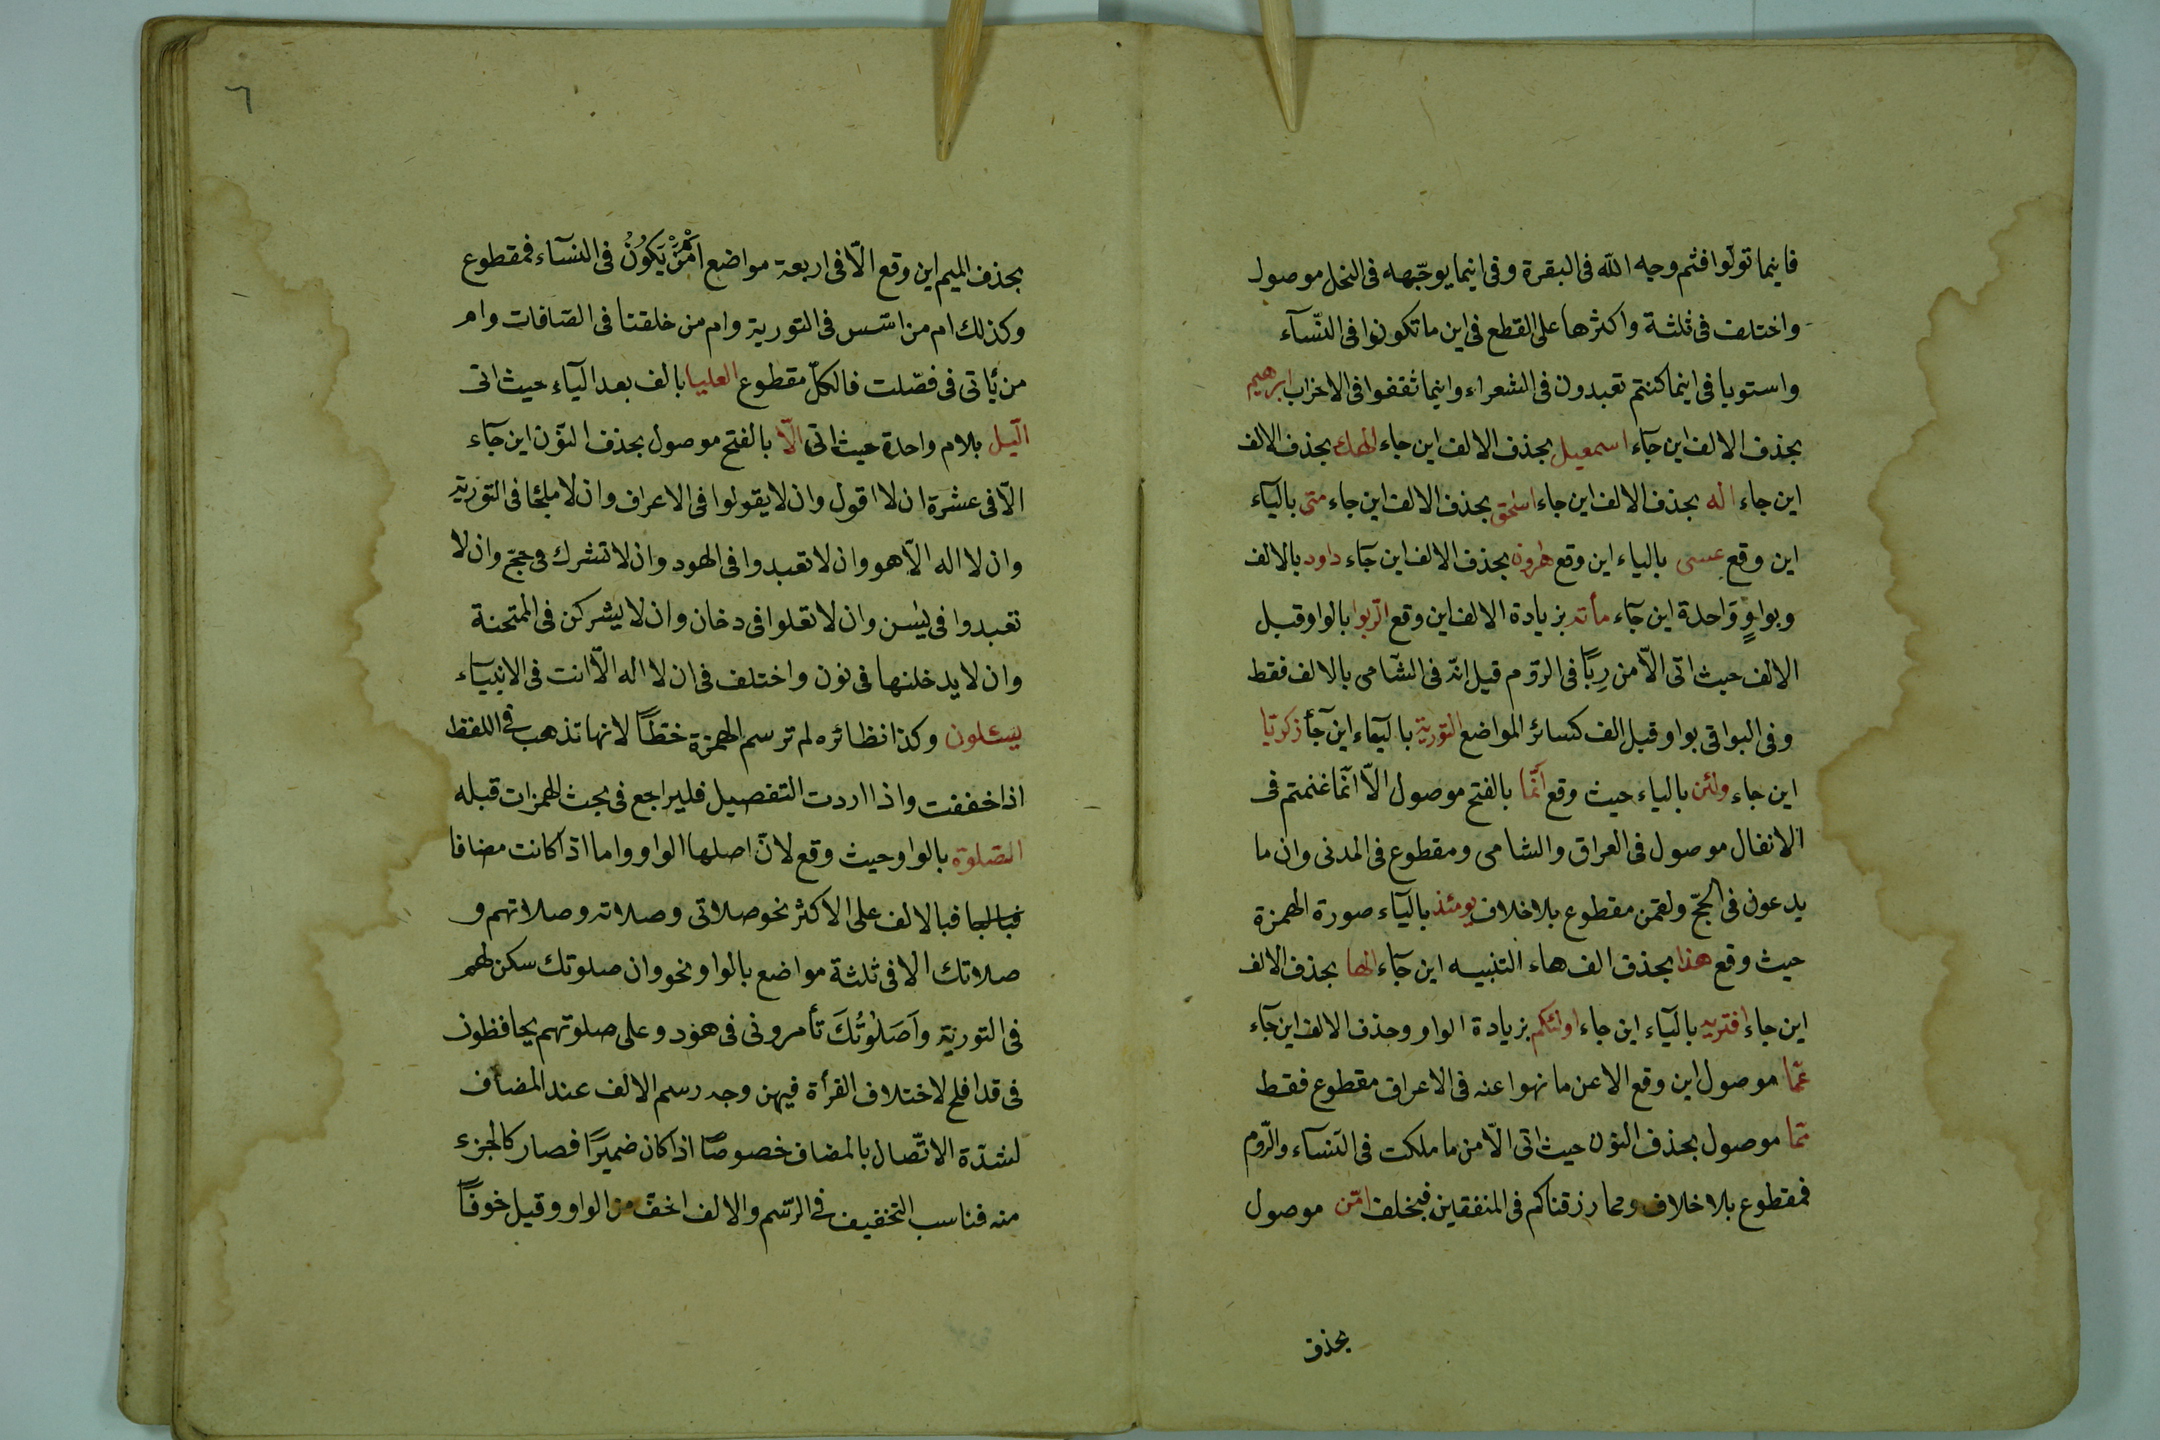 فاينما تولّوا فثم وجه اللّه فى البقرة وفى اينما يوجّهه فى النحل موصول
واختلف فى ثلثة واكثرها على القطع فى اين ما تكونوا فى النّسآء
واستويا فى اينما كنتم تعبدون فى الشعراء واينما ثقفوا فى الاحزاب ابرهيم
بحذف الالف اين جآء اسمعيل بحذف الالف اين جاء الهك بحذف الالف
اين جاء اله بحذف الالف اين جاء اسحق بحذف الالف اين جاء متى باليآء
اين وقع عسى بالياء اين وقع هرون بحذف الالف اين جآء داود بالالف
وبواوٍ وّاحدة اين جآء مأته بزيادة الالف اين وقع الرّبوا بالواو قبل
الالف حيث اتى الّا من رِبًا فى الرّوم قيل انّه فى الشّامى بالالف فقط
وفى البواقى بواو قبل الف كسائر المواضع التورية باليآء اين جآء زكريّا
اين جاء ولئن بالياء حيث وقع انّما بالفتح موصول الّا انّما غنمتم فى
الانفال موصول فى العراق والشامى ومقطوع فى المدنى وان ما
يدعون فى الحجّ ولقمن مقطوع بلا خلاف يومئذ باليآء صورة الهمزة
حيث وقع هذا بحذف الف هاء التنبيه اين جآء الها بحذف الالف
اين جاء افتريه باليآء اين جاء اولئكم بزيادة الواو وحذف الالف اين جآء
عمّا موصول اين وقع الا عن ما نهوا عنه فى الاعراف مقطوع فقط
ممّا موصول بحذف النون حيث اتى الّا من ما ملكت فى النسآء والرّوم
فمقطوع بلا خلاف ومما رزقناكم فى المنفقين فبخلف امّن موصول
بحذف
٦
بحذف الميم اين وقع الّا فى اربعة مواضع اَمْ مَّنْ يَّكُونُ فى النسآء فمقطوع
وكذلك ام من اسّس فى التورية وام من خلقنا فى الصّافات وام
من يّأتى فى فصّلت فالكلّ مقطوع العليا بالف بعد اليآء حيث اتى
الّيل بلام واحدة حيث اتى الّا بالفتح موصول بحذف النّون اين جآء
الّا فى عشرة ان لا اقول وان لا يقولوا فى الاعراف وان لا ملجئا فى التورية
وان لا اله الّا هو وان لا تعبدوا فى الهود وان لا تشرك فى حجّ وان لا
تعبدوا فى يٰسن وان لا تعلوا فى دخان وان لا يشركن فى الممتحنة
وان لا يدخلنها فى نون واختلف فى ان لا اله الّا انت فى الانبيآء
يسئلون وكذا نظائره لم ترسم الهمزة خطًّا لانها تذهب فى اللفظ
اذا خففت واذا اردت التفصيل فليراجع فى بحث الهمزات قبله
الصّلوة بالواو حيث وقع لانّ اصلها الواو واما اذا كانت مضافا
فبالالف على الاكثر نحو صلاتى وصلاته وصلاتهم و
صلاتك الا فى ثلثة مواضع بالواو نحو وان صلوتك سكن لهم
فى التورية واَصَلٰوتُكَ تأمرونى فى هود وعلى صلوتهم يحافظون
فى قد افلح لاختلاف القرأة فيهن وجه رسم الالف عند المضاف
لشدّة الاتّصال بالمضاف خصوصًا اذا كان ضميرًا فصار كالجزء
منه فناسب التخفيف فى الرّسم والالف اخفّ من الواو وقيل خوفًا